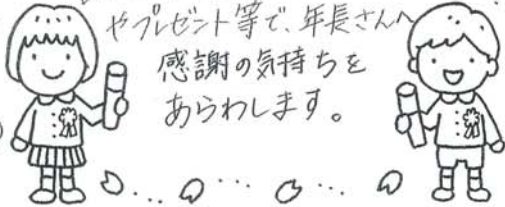 やプレゼント等で、年長さんへ
感謝の気持ちを
あらわします。